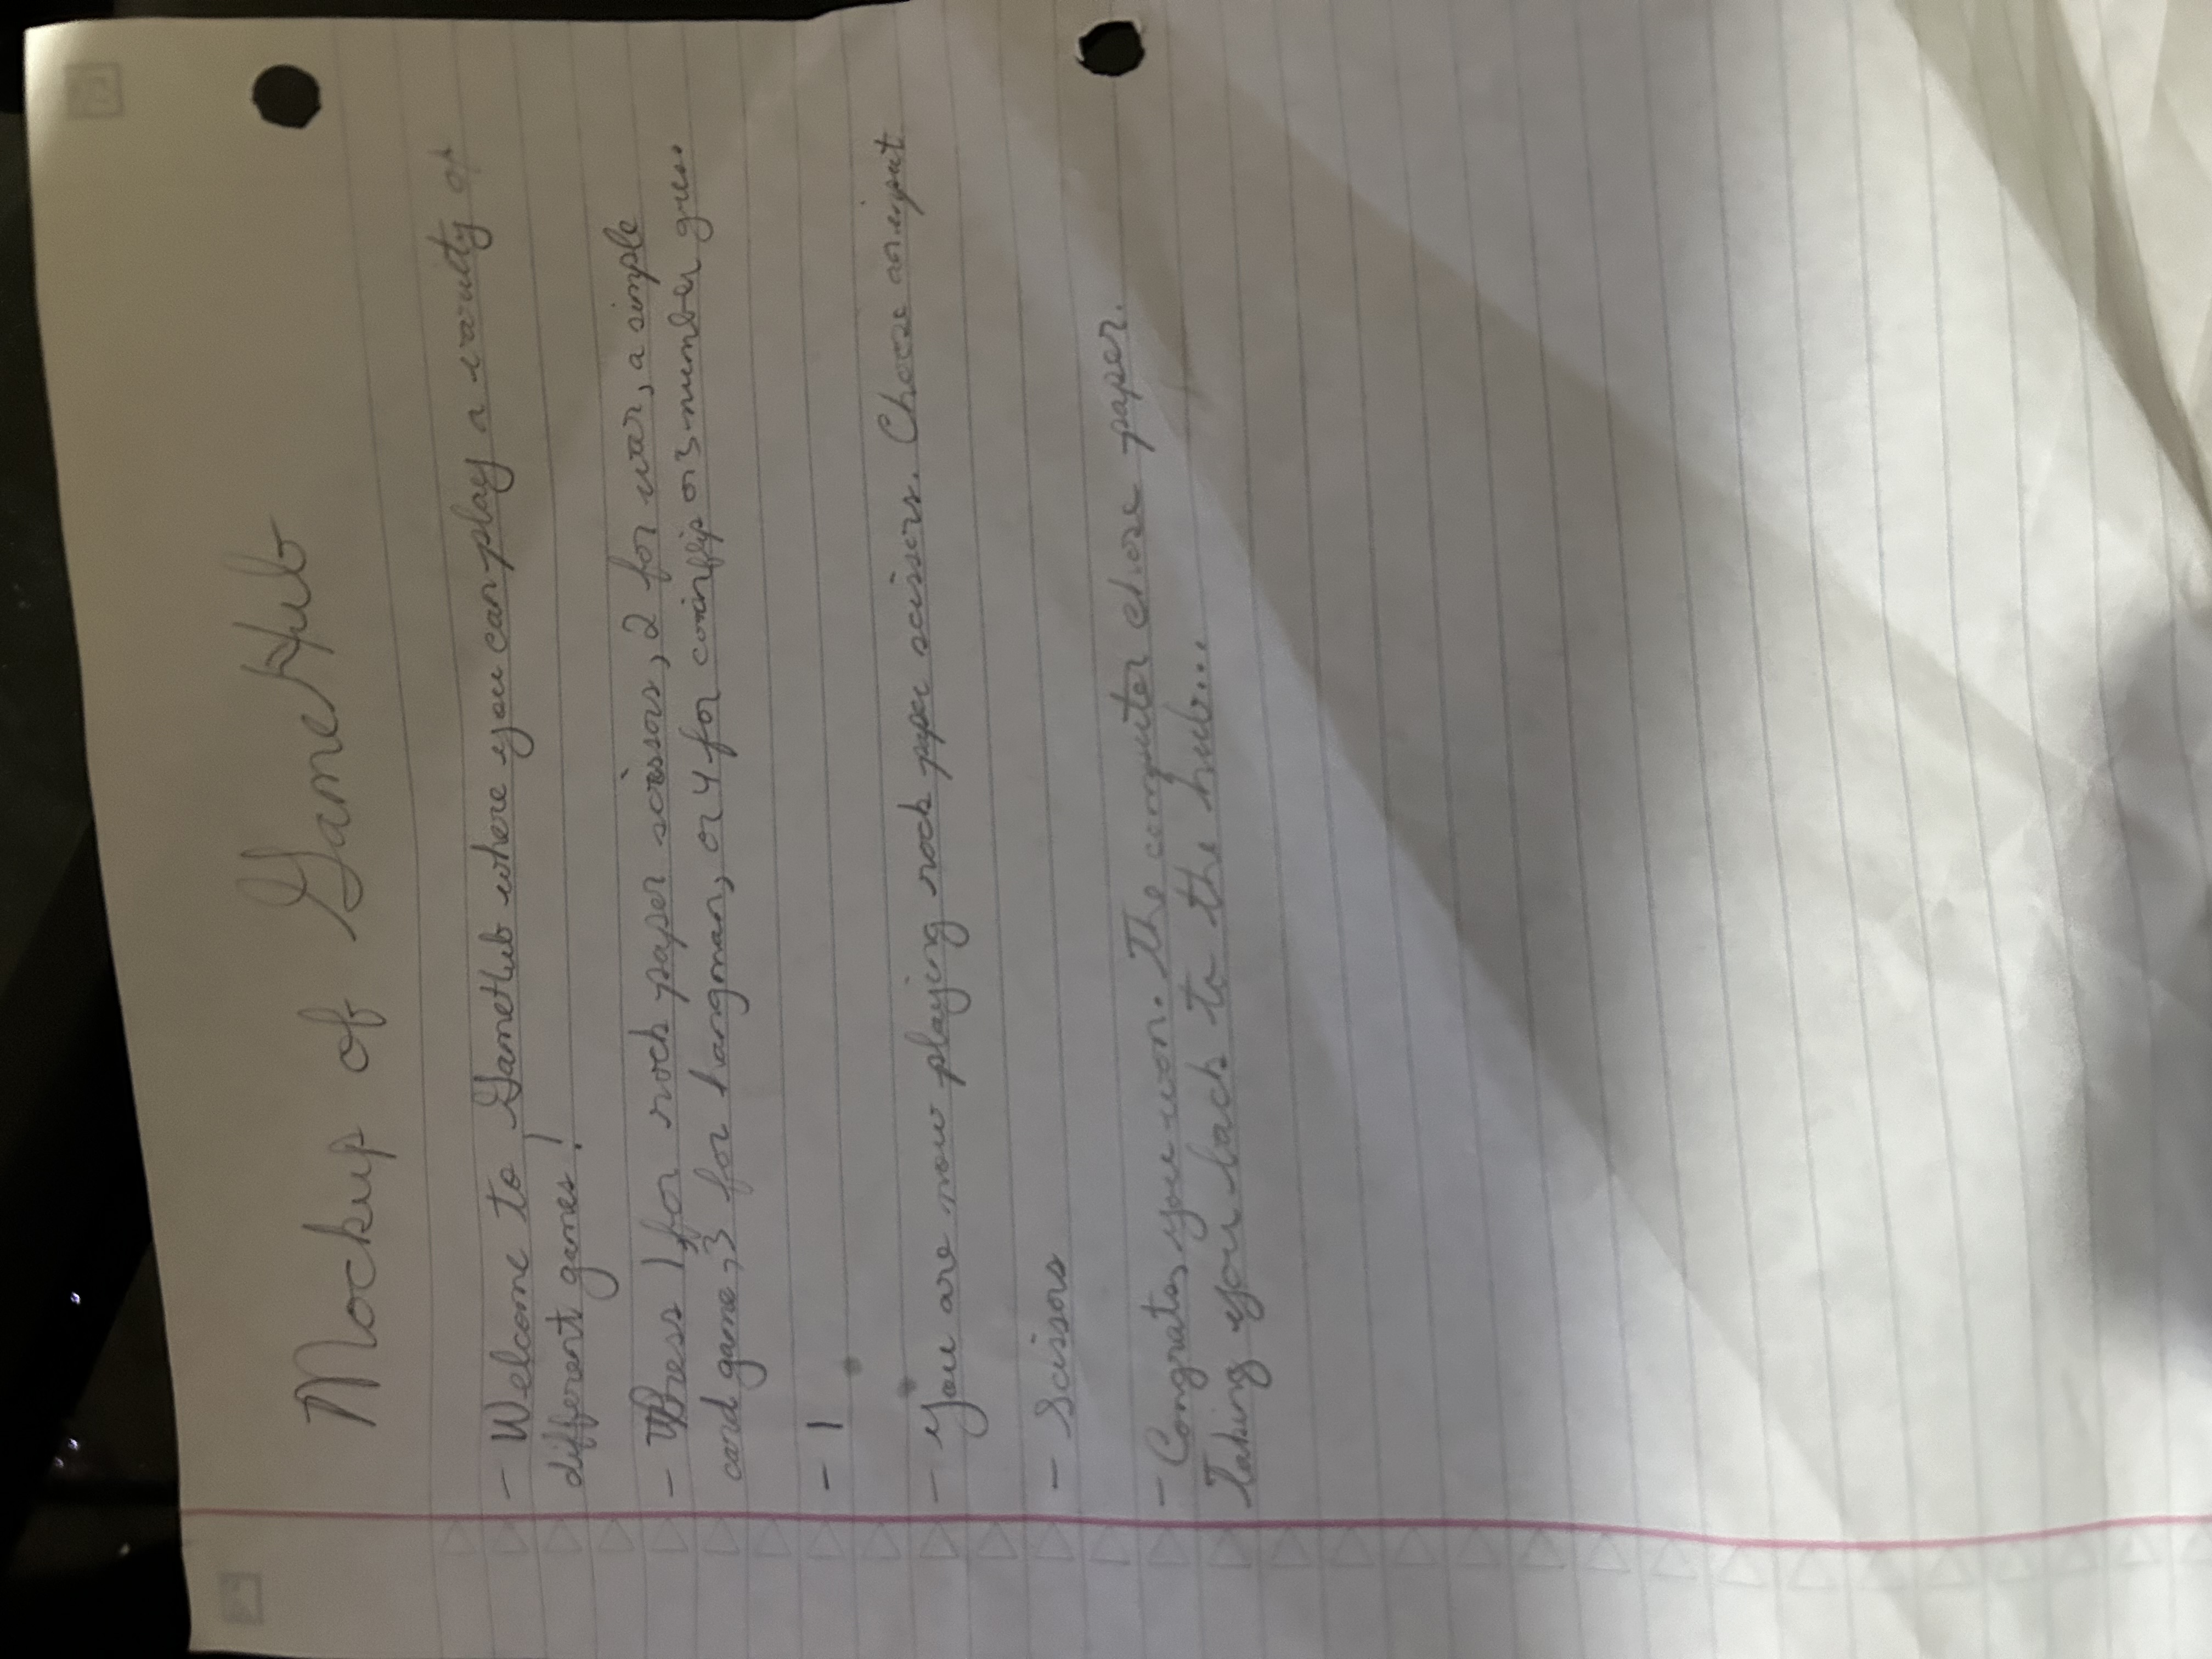 Mockup of GameHub
- Welcome to GameHub where you can play a variety of
different games!
- Press 1, for rock paper scissors, 2 for war, a simple
card game, 3 for hangman, or 4 for coinflip or 5 number guess
- 1
- You are now playing rock paper scissors. Choose an input
- Scissors
- Congrats you won. The computer chose paper.
Taking you back to the hub...